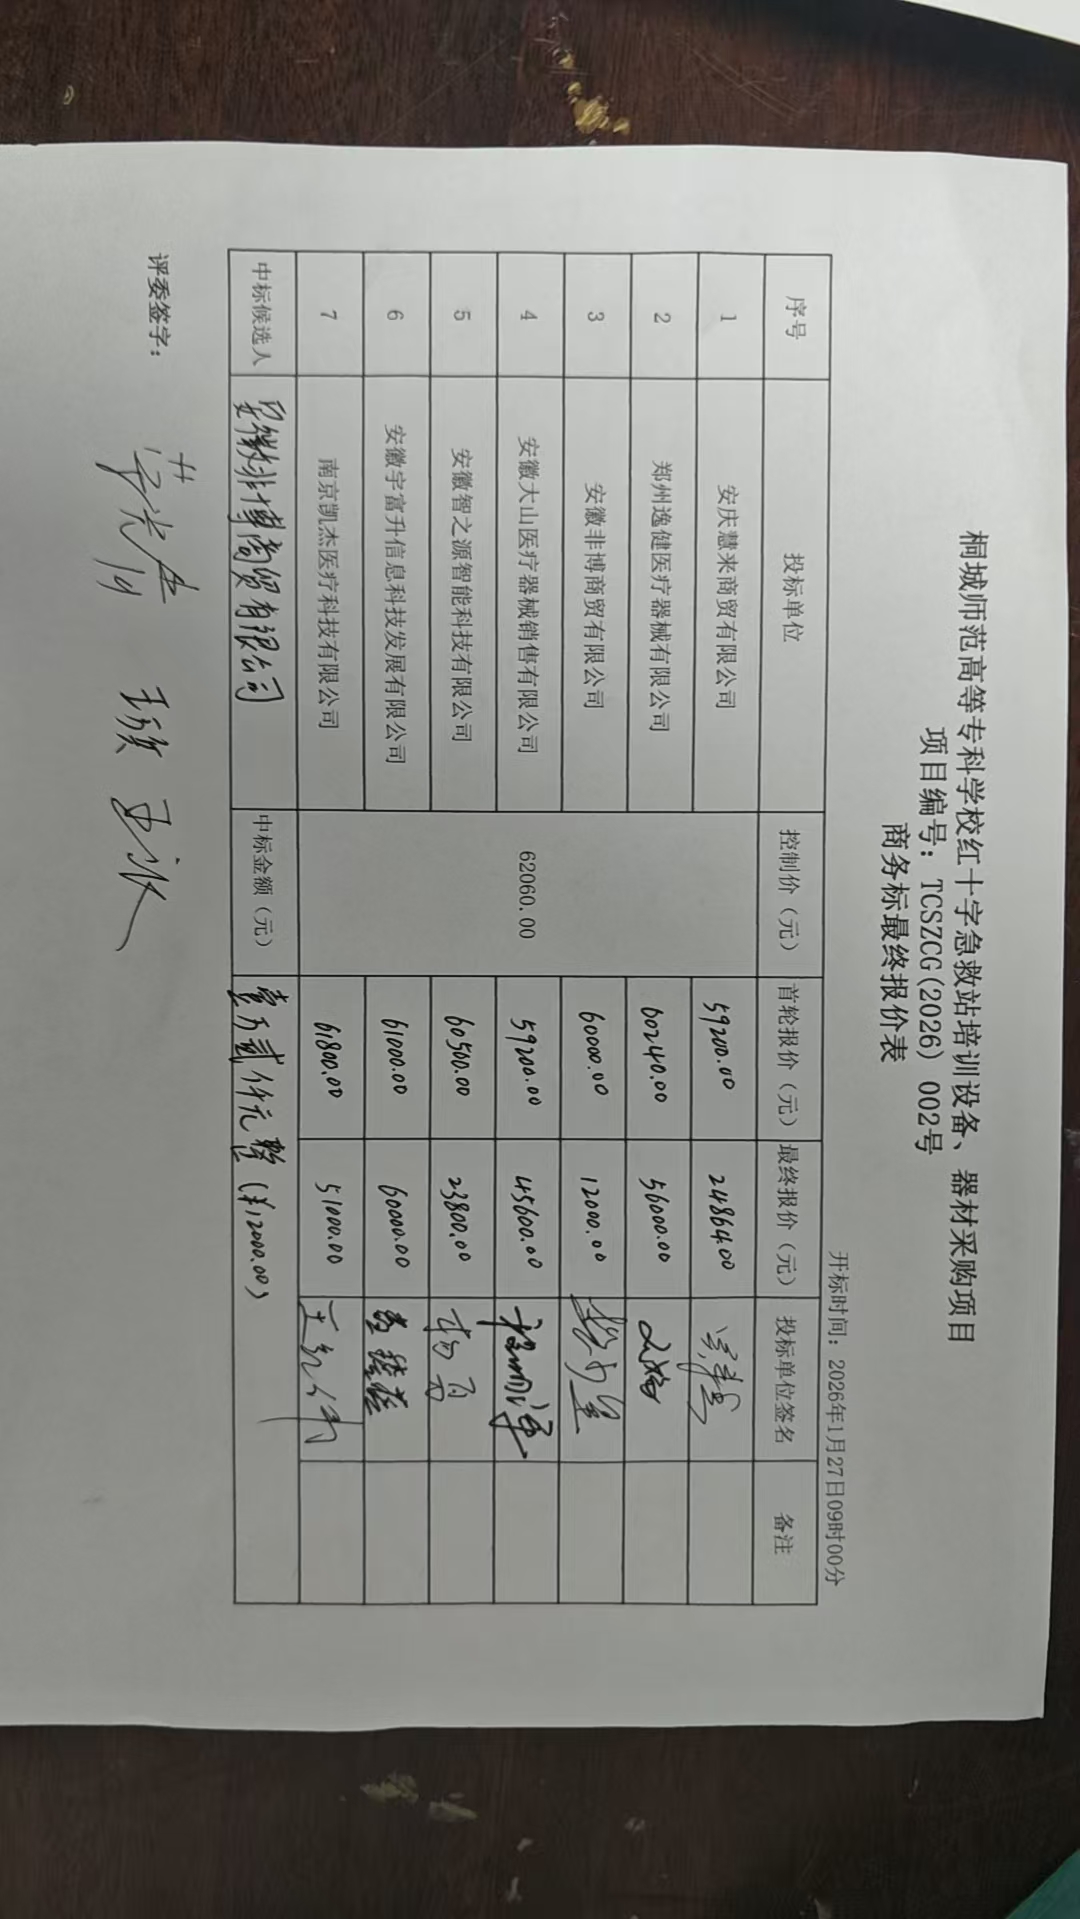 桐城师范高等专科学校红十字急救站培训设备、器材采购项目
项目编号：TCSZCG(2026) 002号
商务标最终报价表
开标时间：2026年1月27日09时00分
序号 投标单位 控制价（元） 首轮报价（元） 最终报价（元） 投标单位签名 备注
1 安庆慧来商贸有限公司 59200.00 24864.00
2 郑州逸健医疗器械有限公司 60240.00 56000.00
3 安徽非博商贸有限公司 60000.00 12000.00
4 安徽大山医疗器械销售有限公司 62060.00 59200.00 45600.00
5 安徽智之源智能科技有限公司 60500.00 23800.00
6 安徽宇富升信息科技发展有限公司 61000.00 60000.00
7 南京凯杰医疗科技有限公司 61800.00 51000.00
中标候选人 安徽非博商贸有限公司 中标金额（元） 壹万贰仟元整（¥12000.00）
评委签字：